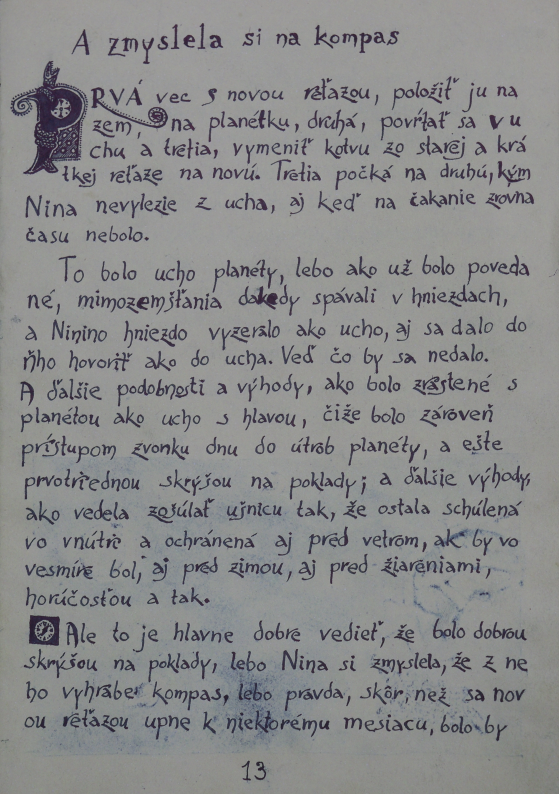 A zmyslela si na kompas
PRVÁ vec s novou reťazou, položiť ju na
zem, na planétku, druhá, povŕtať sa v u
chu a tretia, vymeniť kotvu zo starej a krá
tkej reťaze na novú. Tretia počká na druhú, kým
Nina nevylezie z ucha, aj keď na čakanie zrovna
času nebolo.
To bolo ucho planéty, lebo ako už bolo poveda
né, mimozemšťania dakedy spávali v hniezdach,
a Ninino hniezdo vyzeralo ako ucho, aj sa dalo do
ňho hovoriť ako do ucha. Veď čo by sa nedalo.
A ďalšie podobnosti a výhody, ako bolo zrastené s
planétou ako ucho s hlavou, čiže bolo zároveň
prístupom zvonku dnu do útrob planéty, a ešte
prvotriednou skrýšou na poklady; a ďalšie výhody,
ako vedela zošúlať ušnicu tak, že ostala schúlená
vo vnútri a ochránená aj pred vetrom, ak by vo
vesmíre bol, aj pred zimou, aj pred žiareniami,
horúčosťou a tak.
Ale to je hlavne dobre vedieť, že bolo dobrou
skrýšou na poklady, lebo Nina si zmyslela, že z ne
ho vyhrabe kompas, lebo pravda, skôr, než sa nov
ou reťazou upne k niektorému mesiacu, bolo by
13